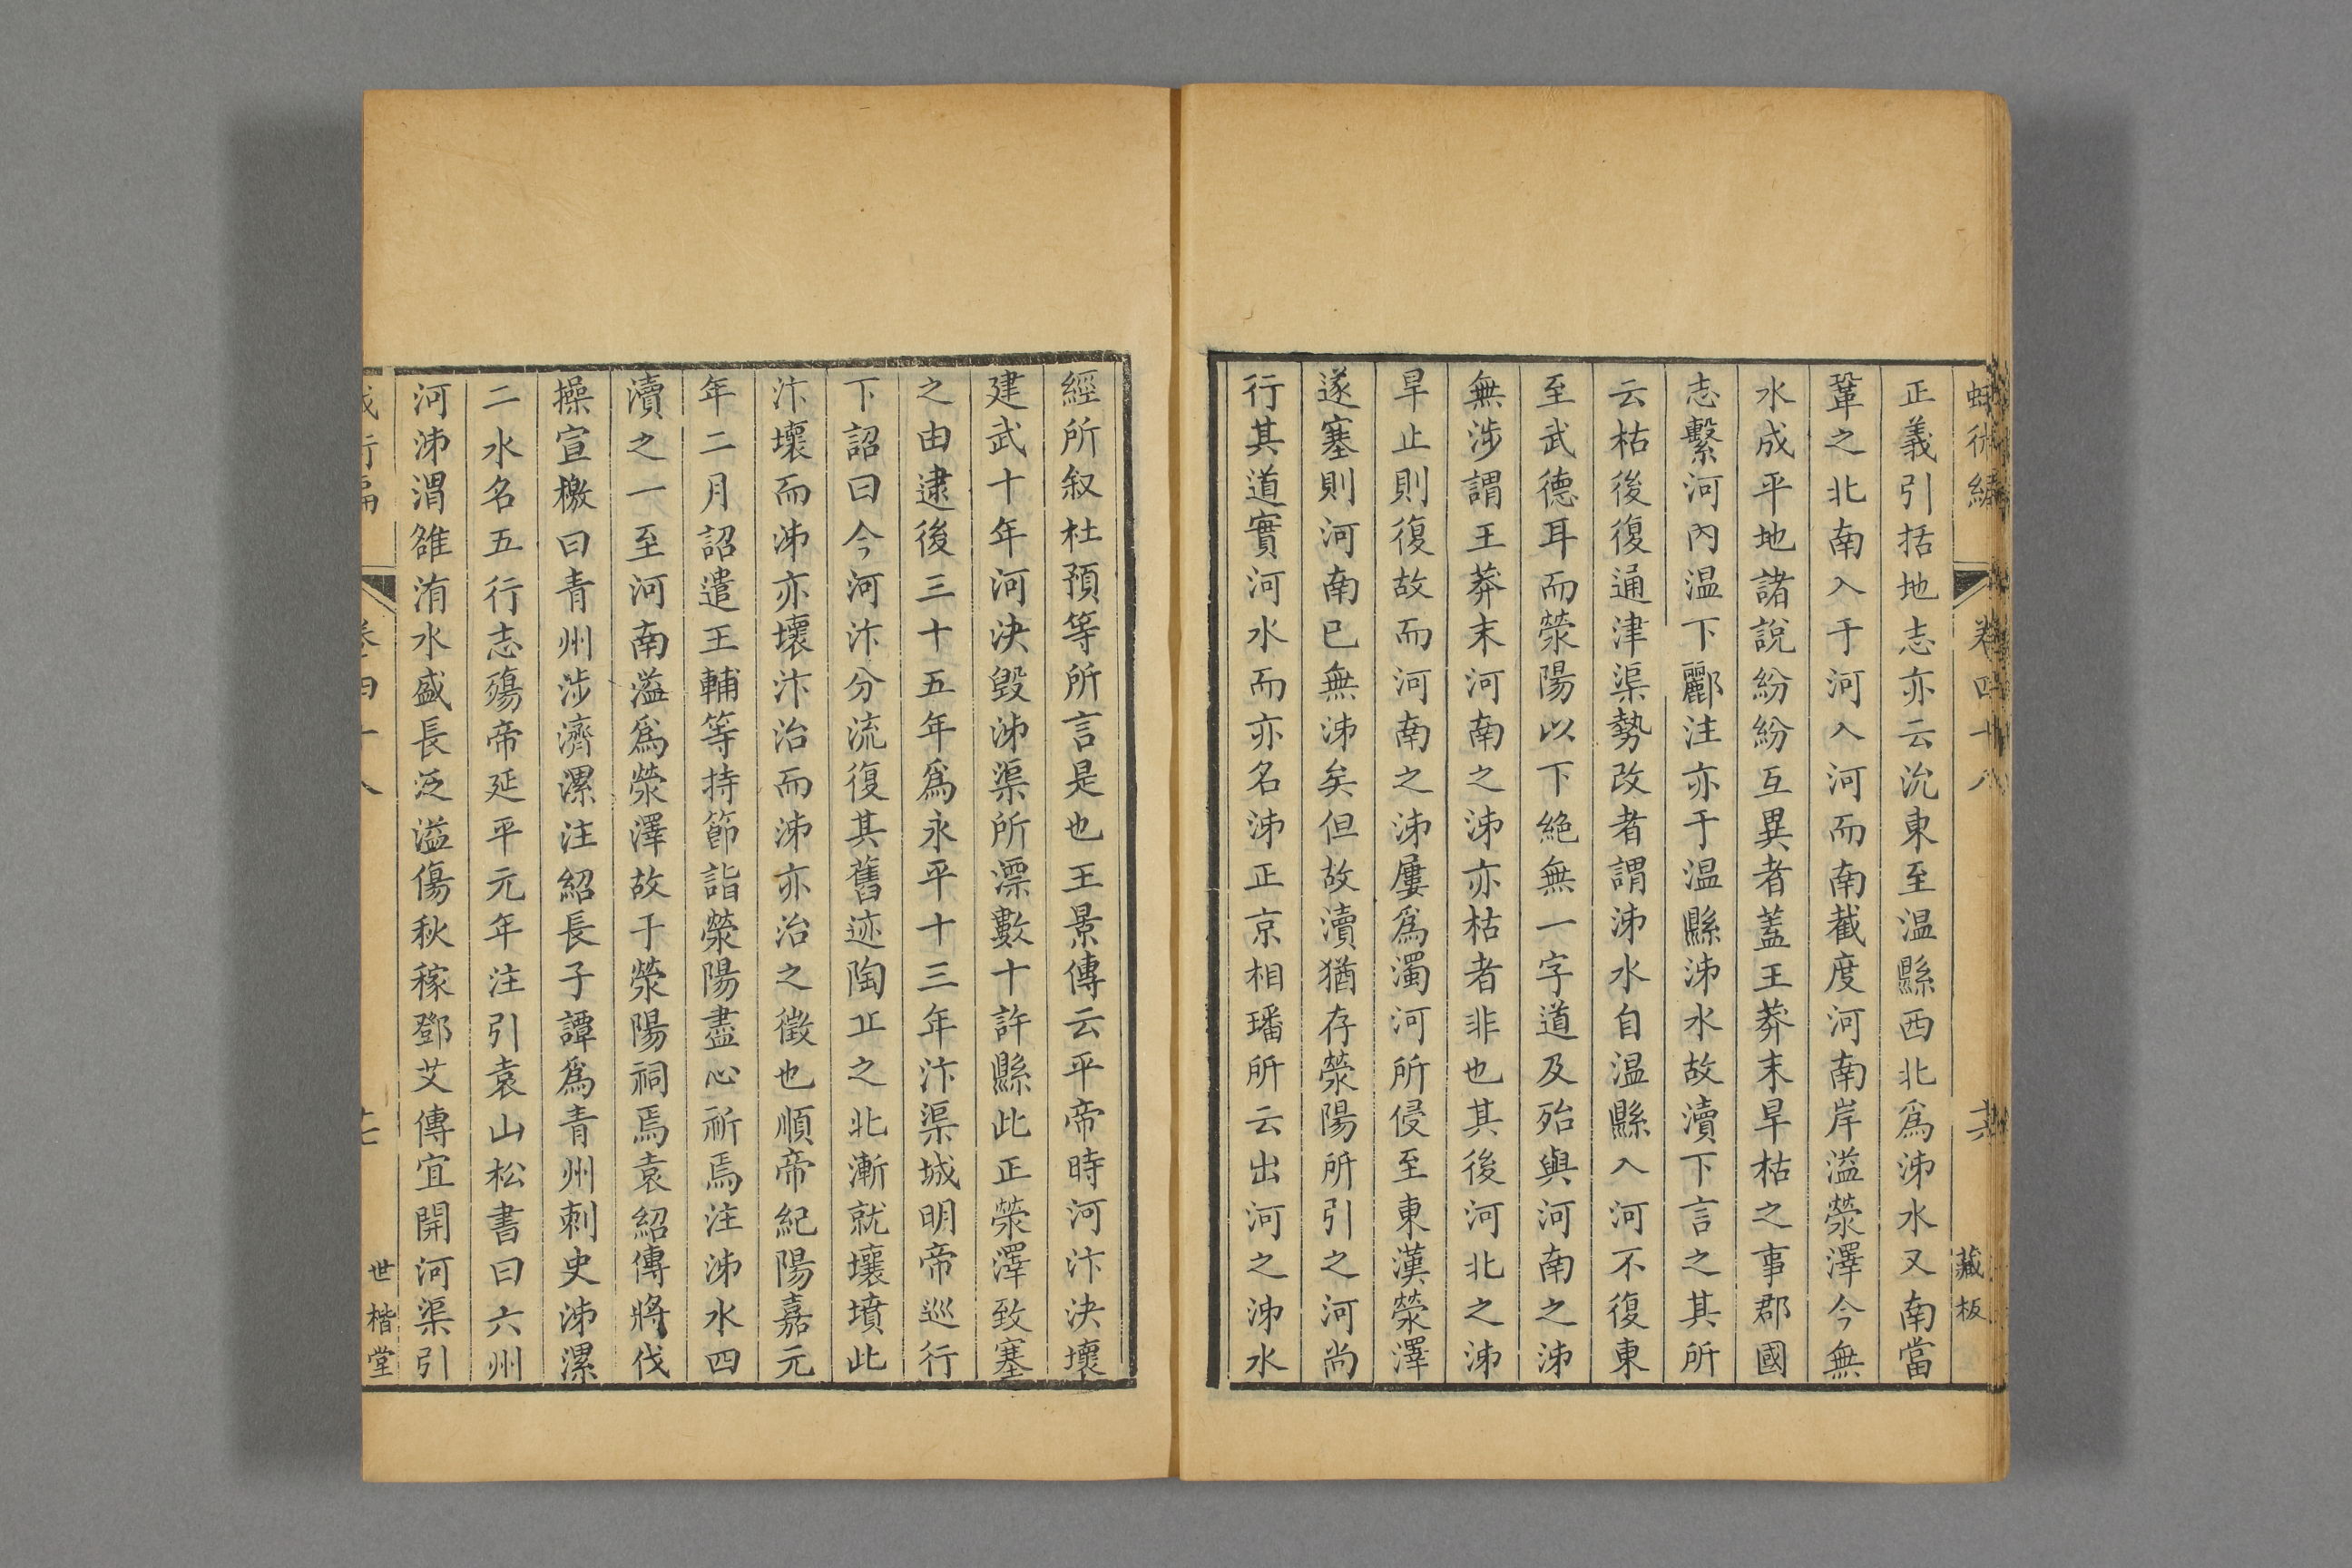 蛾術編
卷四十八
十六
藏板
正義引括地志亦云沇東至温縣西北爲泲水又南當
鞏之北南入于河入河而南截度河南岸溢滎澤今無
水成平地諸說紛紛互異者蓋王莽末旱枯之事郡國
志繫河內温下酈注亦于温縣泲水故瀆下言之其所
云枯後復通津渠勢改者謂泲水自温縣入河不復東
至武德耳而滎陽以下絶無一字道及殆與河南之泲
無涉謂王莽末河南之泲亦枯者非也其後河北之泲
旱止則復故而河南之泲屢爲濁河所侵至東漢滎澤
遂塞則河南已無泲矣但故瀆猶存滎陽所引之河尚
行其道實河水而亦名泲正京相璠所云出河之泲水
經所叙杜預等所言是也王景傳云平帝時河汴決壞
建武十年河決毀泲渠所漂數十許縣此正滎澤致塞
之由逮後三十五年爲永平十三年汴渠城明帝巡行
下詔曰今河汴分流復其舊迹陶丘之北漸就壤墳此
汴壞而泲亦壞汴治而泲亦治之徵也順帝紀陽嘉元
年二月詔遣王輔等持節詣滎陽盡心祈焉注泲水四
瀆之一至河南溢爲滎澤故于滎陽祠焉袁紹傳將伐
操宣檄曰青州涉濟漯注紹長子譚爲青州刺史泲漯
二水名五行志殤帝延平元年注引袁山松書曰六州
河泲渭雒洧水盛長泛溢傷秋稼鄧艾傳宜開河渠引
卷四十八
十七
世楷堂